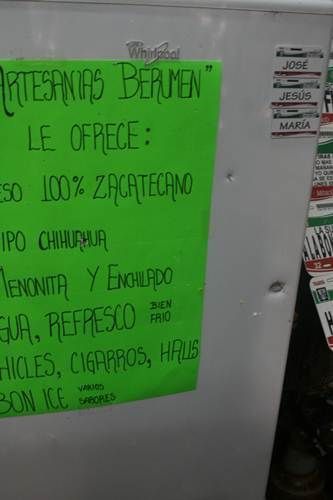 Whirlpool
ARTESANIAS BERUMEN"
LE OFRECE:
ESO 100% ZACATECANO
IPO CHIHUAHUA
MENONITA Y ENCHILADO
GUA, REFRESCO BIEN FRIO
HICLES, CIGARROS, HALLS
BON ICE VARIOS SABORES
JOSÉ
JESÚS
MARÍA